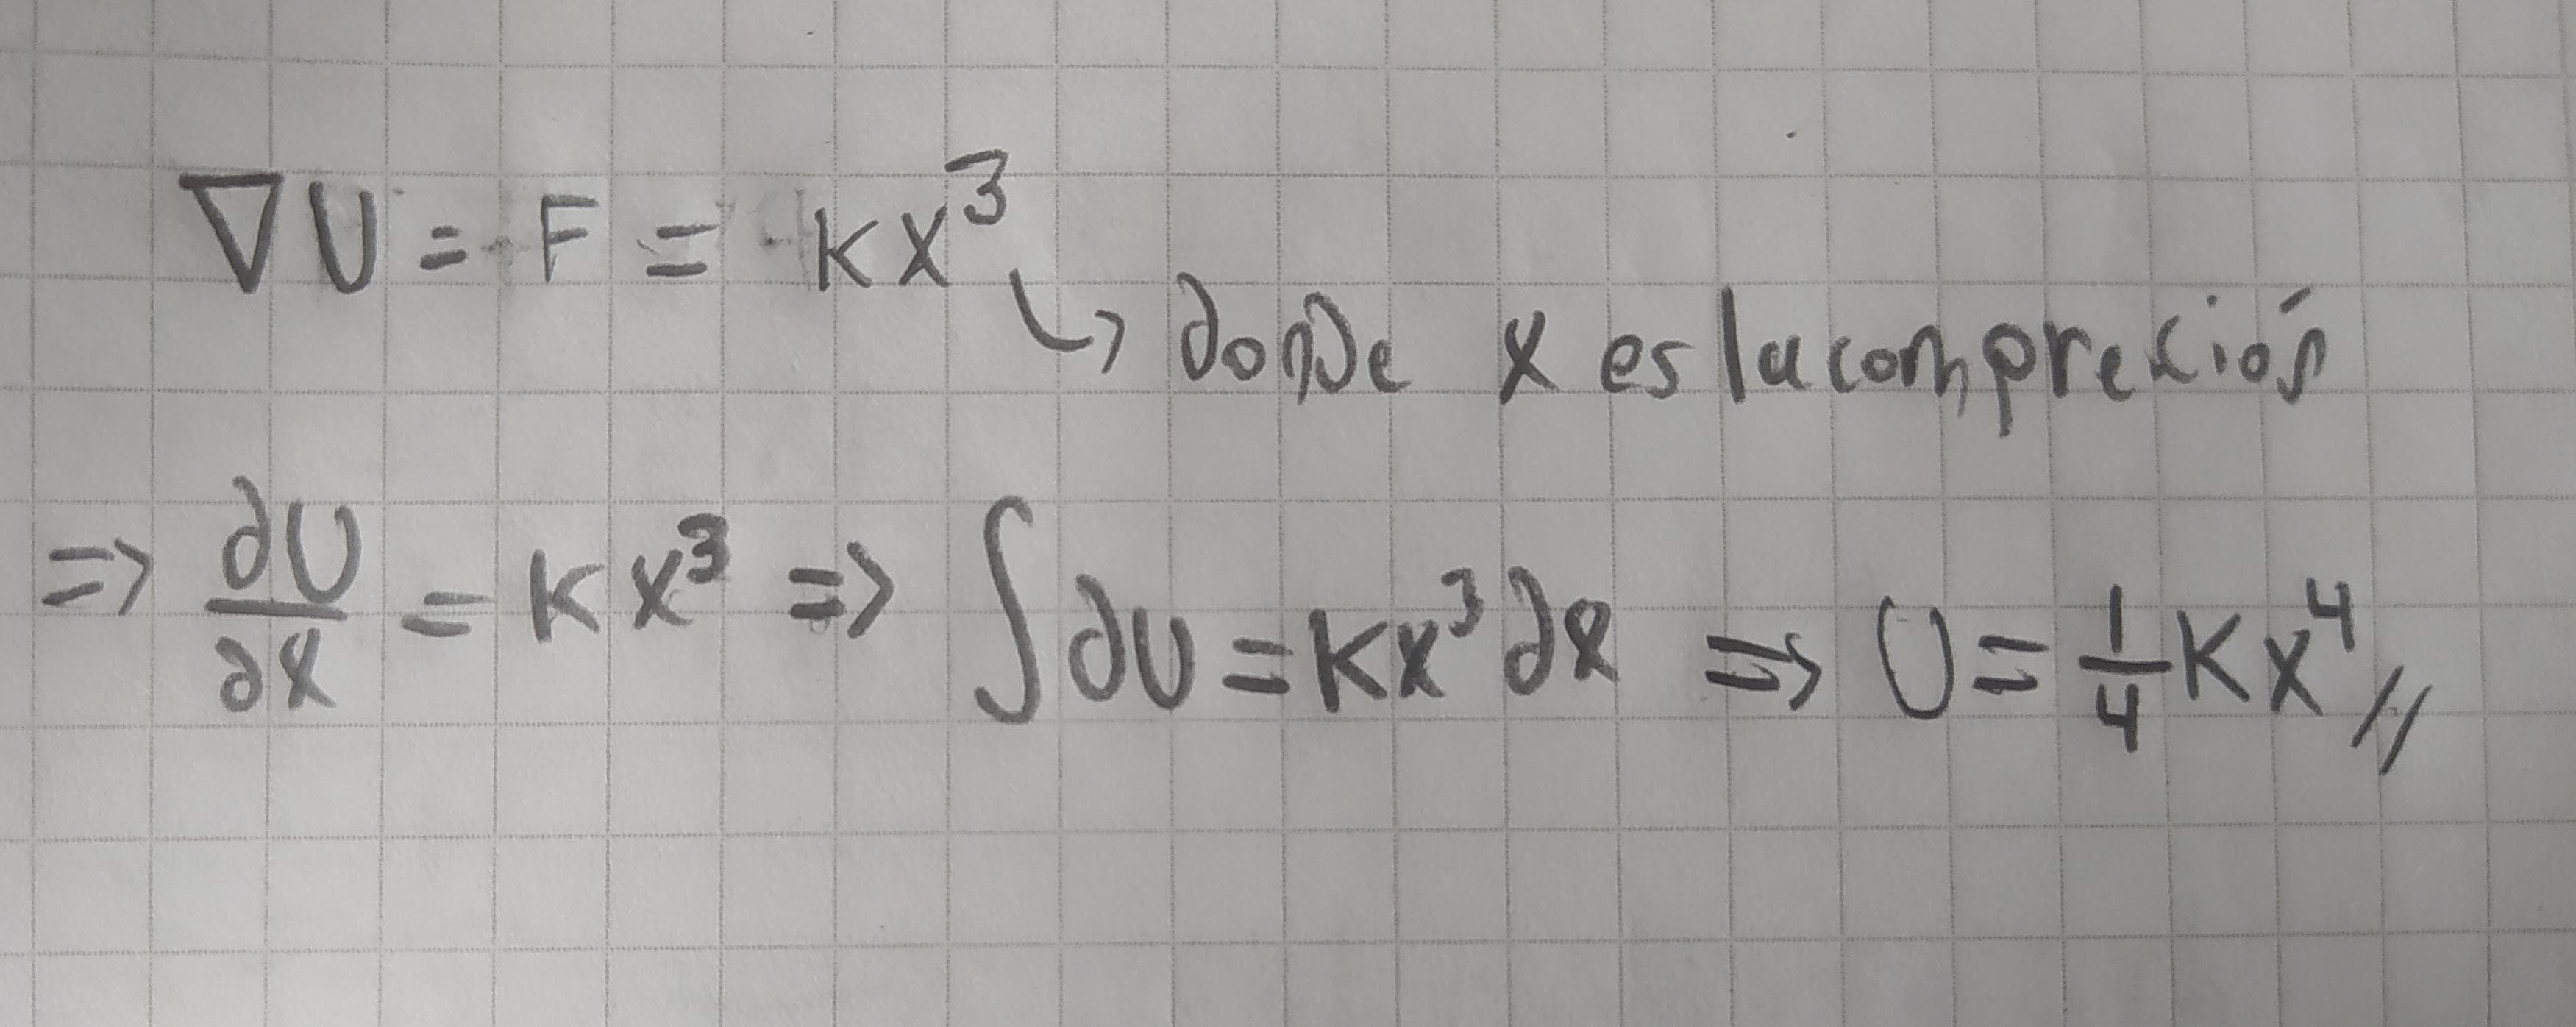 ∇U = F = kx³
↳ donde x es la comprexión
=> ∂U/∂x = kx³ => ∫∂U = kx³∂x => U = 1/4 kx⁴ //